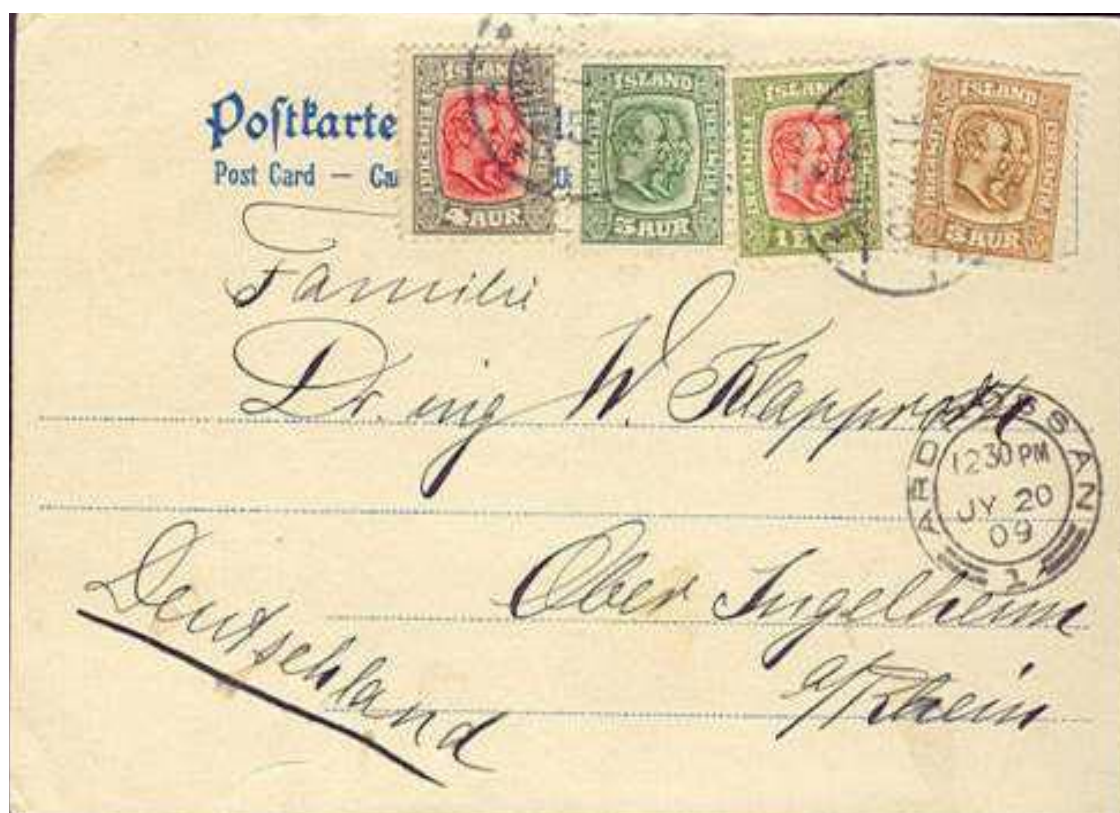 Postkarte
Post Card –
ÍSLAND
4 AUR
ÍSLAND
5 AUR
ÍSLAND
1 EYR
ÍSLAND
3 AUR
Familie
Dr. ing W. Klapproth
ARDROSSAN
1230 PM
JY 20
09
1
Ober Ingelheim
a/Rhein
Deutschland